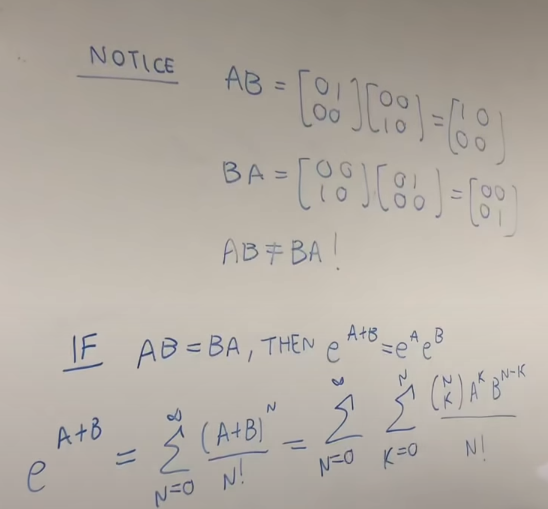 NOTICE AB = [0 1 0 0] [0 0 1 0] = [1 0 0 0]
BA = [0 0 1 0] [0 1 0 0] = [0 0 0 1]
AB ≠ BA!
IF AB = BA, THEN e^{A+B} = e^A e^B
e^{A+B} = ∑_{N=0}^{∞} (A+B)^N / N! = ∑_{N=0}^{∞} ∑_{K=0}^{N} (N K) A^K B^{N-K} / N!